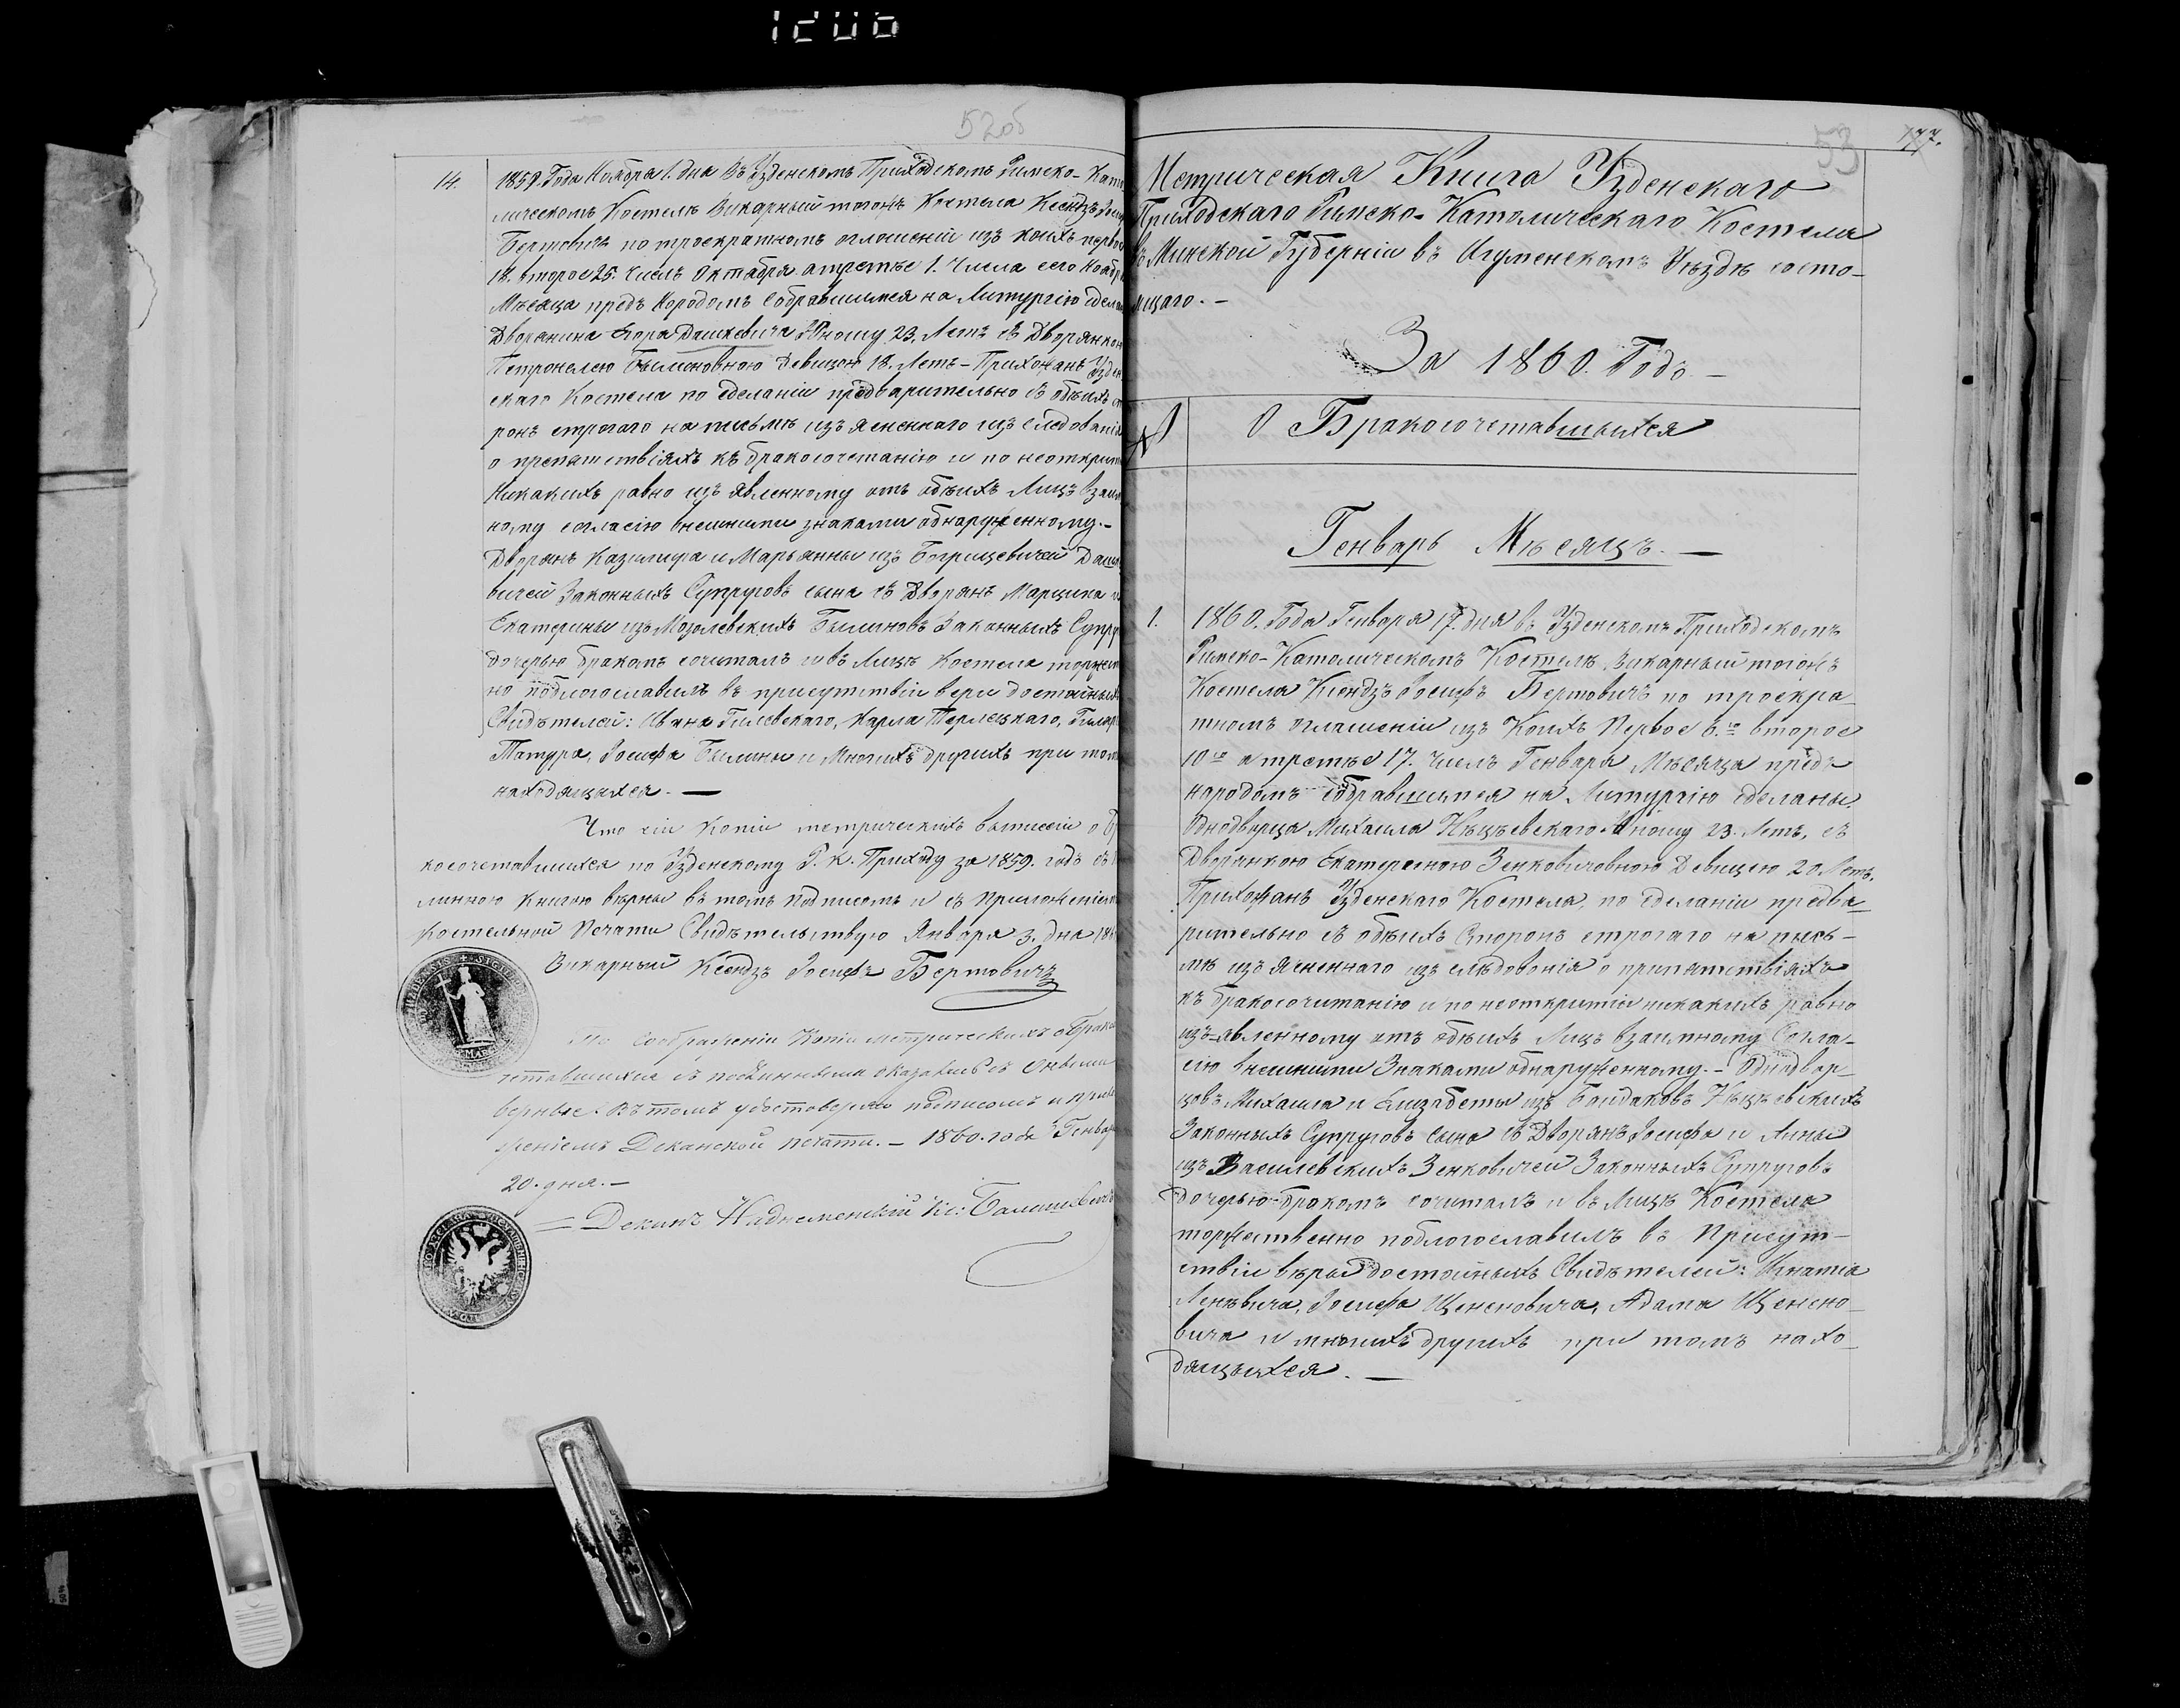 52об
14. 1859. Года Ноября 1. дня Въ Узденскомъ Приходскомъ Римско-Като
лическомъ Костелѣ Викарный тогожъ Костела Ксендзъ Іоси
Бертовичъ по троекратномъ оглошеніи изъ коихъ первое
18. второе 25. Числъ Октября а третье 1. Числа сего Ноября
Мѣсяца предъ Народомъ Собравшимся на Литургію сдела
Дворянина Егора Дашкевича Юношу 23. Летъ съ Дворянкою
Петронелею Былиновною Девицою 18. Летъ - Прихожанъ Узден
скаго Костела по сделаніи предварительно съ обѣихъ ст
ронъ строгаго на письмѣ изъясненнаго изследованія
о препятствіяхъ къ бракосочетанію и по неоткрыт
Никакихъ равно изъявленному отъ обѣихъ Лицъ взаим
ному согласію внешними знаками обнаруженному.-
Дворянъ Казимира и Марьянны изъ Богрицевичей Даш
вичей Законныхъ Супруговъ сына съ Дворянъ Марцина и
Екатерины изъ Мозолевскихъ Былиновъ Законныхъ Супру
дочерью бракомъ сочиталъ и въ Лицѣ Костела торжест
но поблогославилъ въ присутствіи веры достойныхъ
Свидѣтелей: Ивана Гилевскаго, Карла Терлецкаго, Гилар
Татура, Іосифа Былины и Многихъ другихъ при томъ
находящихся. —
Что сіи копіи метрическихъ выписей о Бр
косочетавшихся по Узденскому Р. К. Приходу за 1859. годъ съ
линною книгою вѣрны въ томъ подписомъ и съ приложеніемъ
Костельной Печати Свидѣтельствую Января 3. дня 18
Викарный Ксендзъ Іосифъ Бертовичъ
По Соображеніи Копіи метрическихъ о Брако
четавшихся съ подлинными оказались съ оными
верные. Въ томъ удостоверяю подписомъ и прило
женіемъ Деканской печати. - 1860. года Генваря
20. дня. -
Деканъ Надмеменскій Кс: Балашевичъ
53
177.
Метрическая Книга Узденскаго
Приходскаго Римско-Католическаго Костела
въ Минской Губерніи въ Игуменскомъ Уѣздѣ состо-
ящаго. -
За 1860. Годъ -
№ О Бракосочетавшыхся
Генварь Мѣсяцъ. —
1. 1860. Года Генваря 17. дня въ Узденскомъ Приходскомъ
Римско-Католическомъ Костелѣ Викарный тогожъ
Костела Ксендзъ Іосифъ Бертовичъ по троекра-
тномъ оглашеніи изъ Коихъ Первое 6.го второе
10го а третье 17. Числъ Генваря Мѣсяца предъ
народомъ собравшимся на Литургію сделаны.
Однодворца Михаила Нѣцѣевскаго Юношу 23. Летъ, съ
Дворянкою Екатериною Зенковичовною Девицею 20. Летъ.
Прихожанъ Узденскаго Костела, по сделаніи предва-
рительно съ обѣихъ Сторонъ строгаго на пись-
мѣ изъясненнаго изслѣдованія о припятствіяхъ
къ бракосочитанію и по неоткрытіи никакихъ равно
изъ-явленному отъ обѣихъ Лицъ взаимному Согла-
сію внешними Знаками обнаруженному. - Однодвор-
цовъ Михаила и Елизабеты изъ Байдаковъ Нѣцѣевскихъ
Законныхъ Супруговъ Сына съ Дворянъ Іосифа и Анны
изъ Василевскихъ Зенковичей Законныхъ Супруговъ
дочерью-бракомъ сочиталъ и въ Лицѣ Костела
торжественно поблогославилъ въ Присут-
ствіи вѣры достойныхъ Свидѣтелей: Игнатія
Ленѣвича, Іосифа Щененовича, Адама Щенено-
вича и многихъ другихъ при томъ нахо-
дящыхся. —